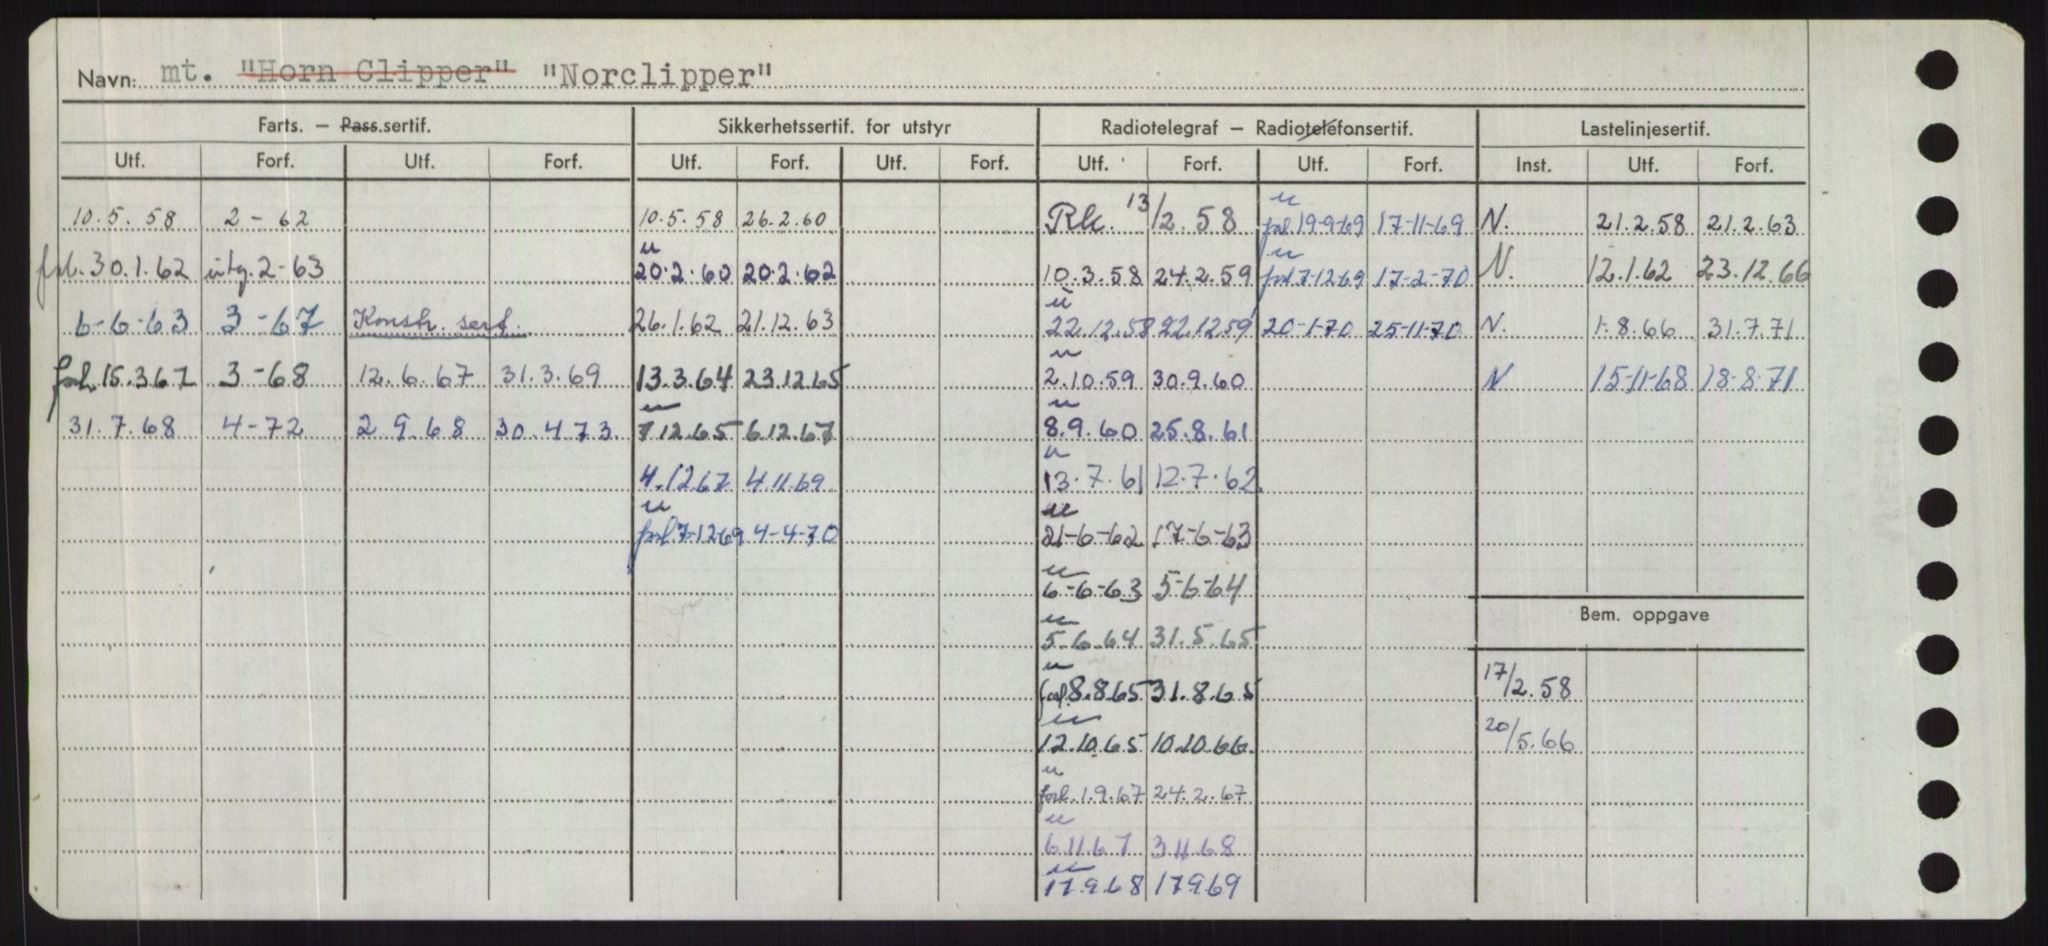 Navn: mt. "Horn Clipper" "Norclipper"
Farts. – Pass.sertif. Sikkerhetssertif. for utstyr Radiotelegraf – Radiotelefonsertif. Lastelinjesertif.
Utf. Forf. Utf. Forf. Utf. Forf. Utf. Forf. Utf. Forf. Utf. Forf. Inst. Utf. Forf.
10.5.58 2-62 10.5.58 26.2.60 Rk. 13/2.58 u forl. 19-9-69 17-11-69 N. 21.2.58 21.2.63
30.1.62 2-63 u 20.2.60 20.2.62 10.3.58 24.2.59 u forl 7-12-69 17-2-70 N. 12.1.62 23.12.66
6-6-63 3-67 Konstr. sert. 26.1.62 21.12.63 u 22.12.58 22.12.59 20-1-70 25-11-70 N. 1.8.66 31.7.71
forl. 15.3.67 3-68 12.6.67 31.3.69 13.3.64 23.12.65 u 2.10.59 30.9.60 N 15-11-68 18-8-71
31.7.68 4-72 2.9.68 30.4.73 u 7.12.65 6.12.67 u 8.9.60 25.8.61
4.12.67 4.11.69 u 13.7.61 12.7.62
u forl. 7-12-69 4-4-70 u 21-6-62 17-6-63
u 6-6-63 5-6-64
Bem. oppgave
u 5.6.64 31.5.65
u forl. 8.8.65 31.8.65 17/2.58
u 12.10.65 10.10.66 20/5.66
u forl. 1.9.67 24.2.67
u 6.11.67 3.11.68
u 17.9.68 17.9.69